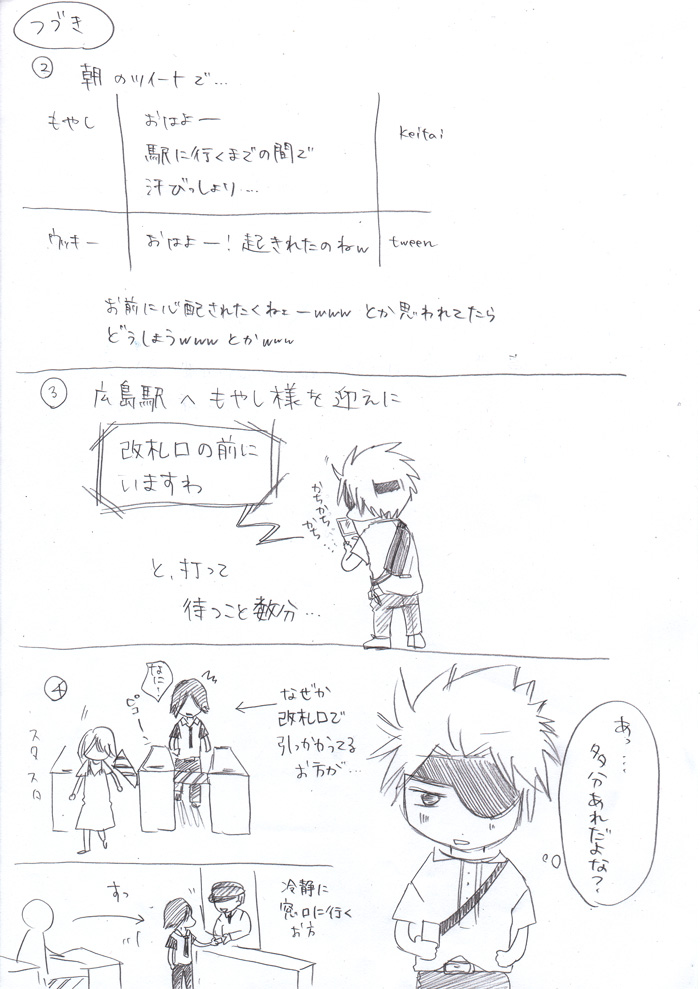 つづき
② 朝のツイートで…
もやし
おはよー
駅に行くまでの間で
汗びっしょり…
keitai
ウッキー
おはよー！起きれたのねw
tween
お前に心配されたくねェーwww とか思われてたら
どうしようwww とかwww
③ 広島駅へもやし様を迎えに
改札口の前に
いますわ
かちかち
かち…
と、打って
待つこと数分…
④
スタスタ
なに！
ピコーン
なぜか
改札口で
引っかかってる
お方が…
あっ…
多分あれだよな？
すっ
冷静に
窓口に行く
お方